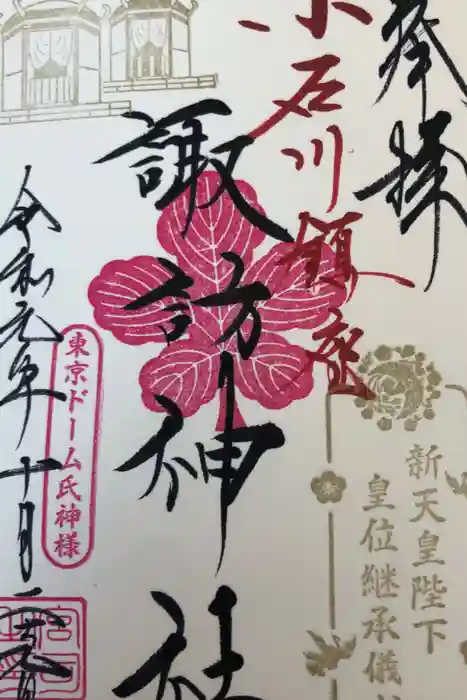 奉拝
小石川鎮座
諏訪神社
新天皇陛下
皇位継承儀
東京ドーム氏神様
令和元年十月二